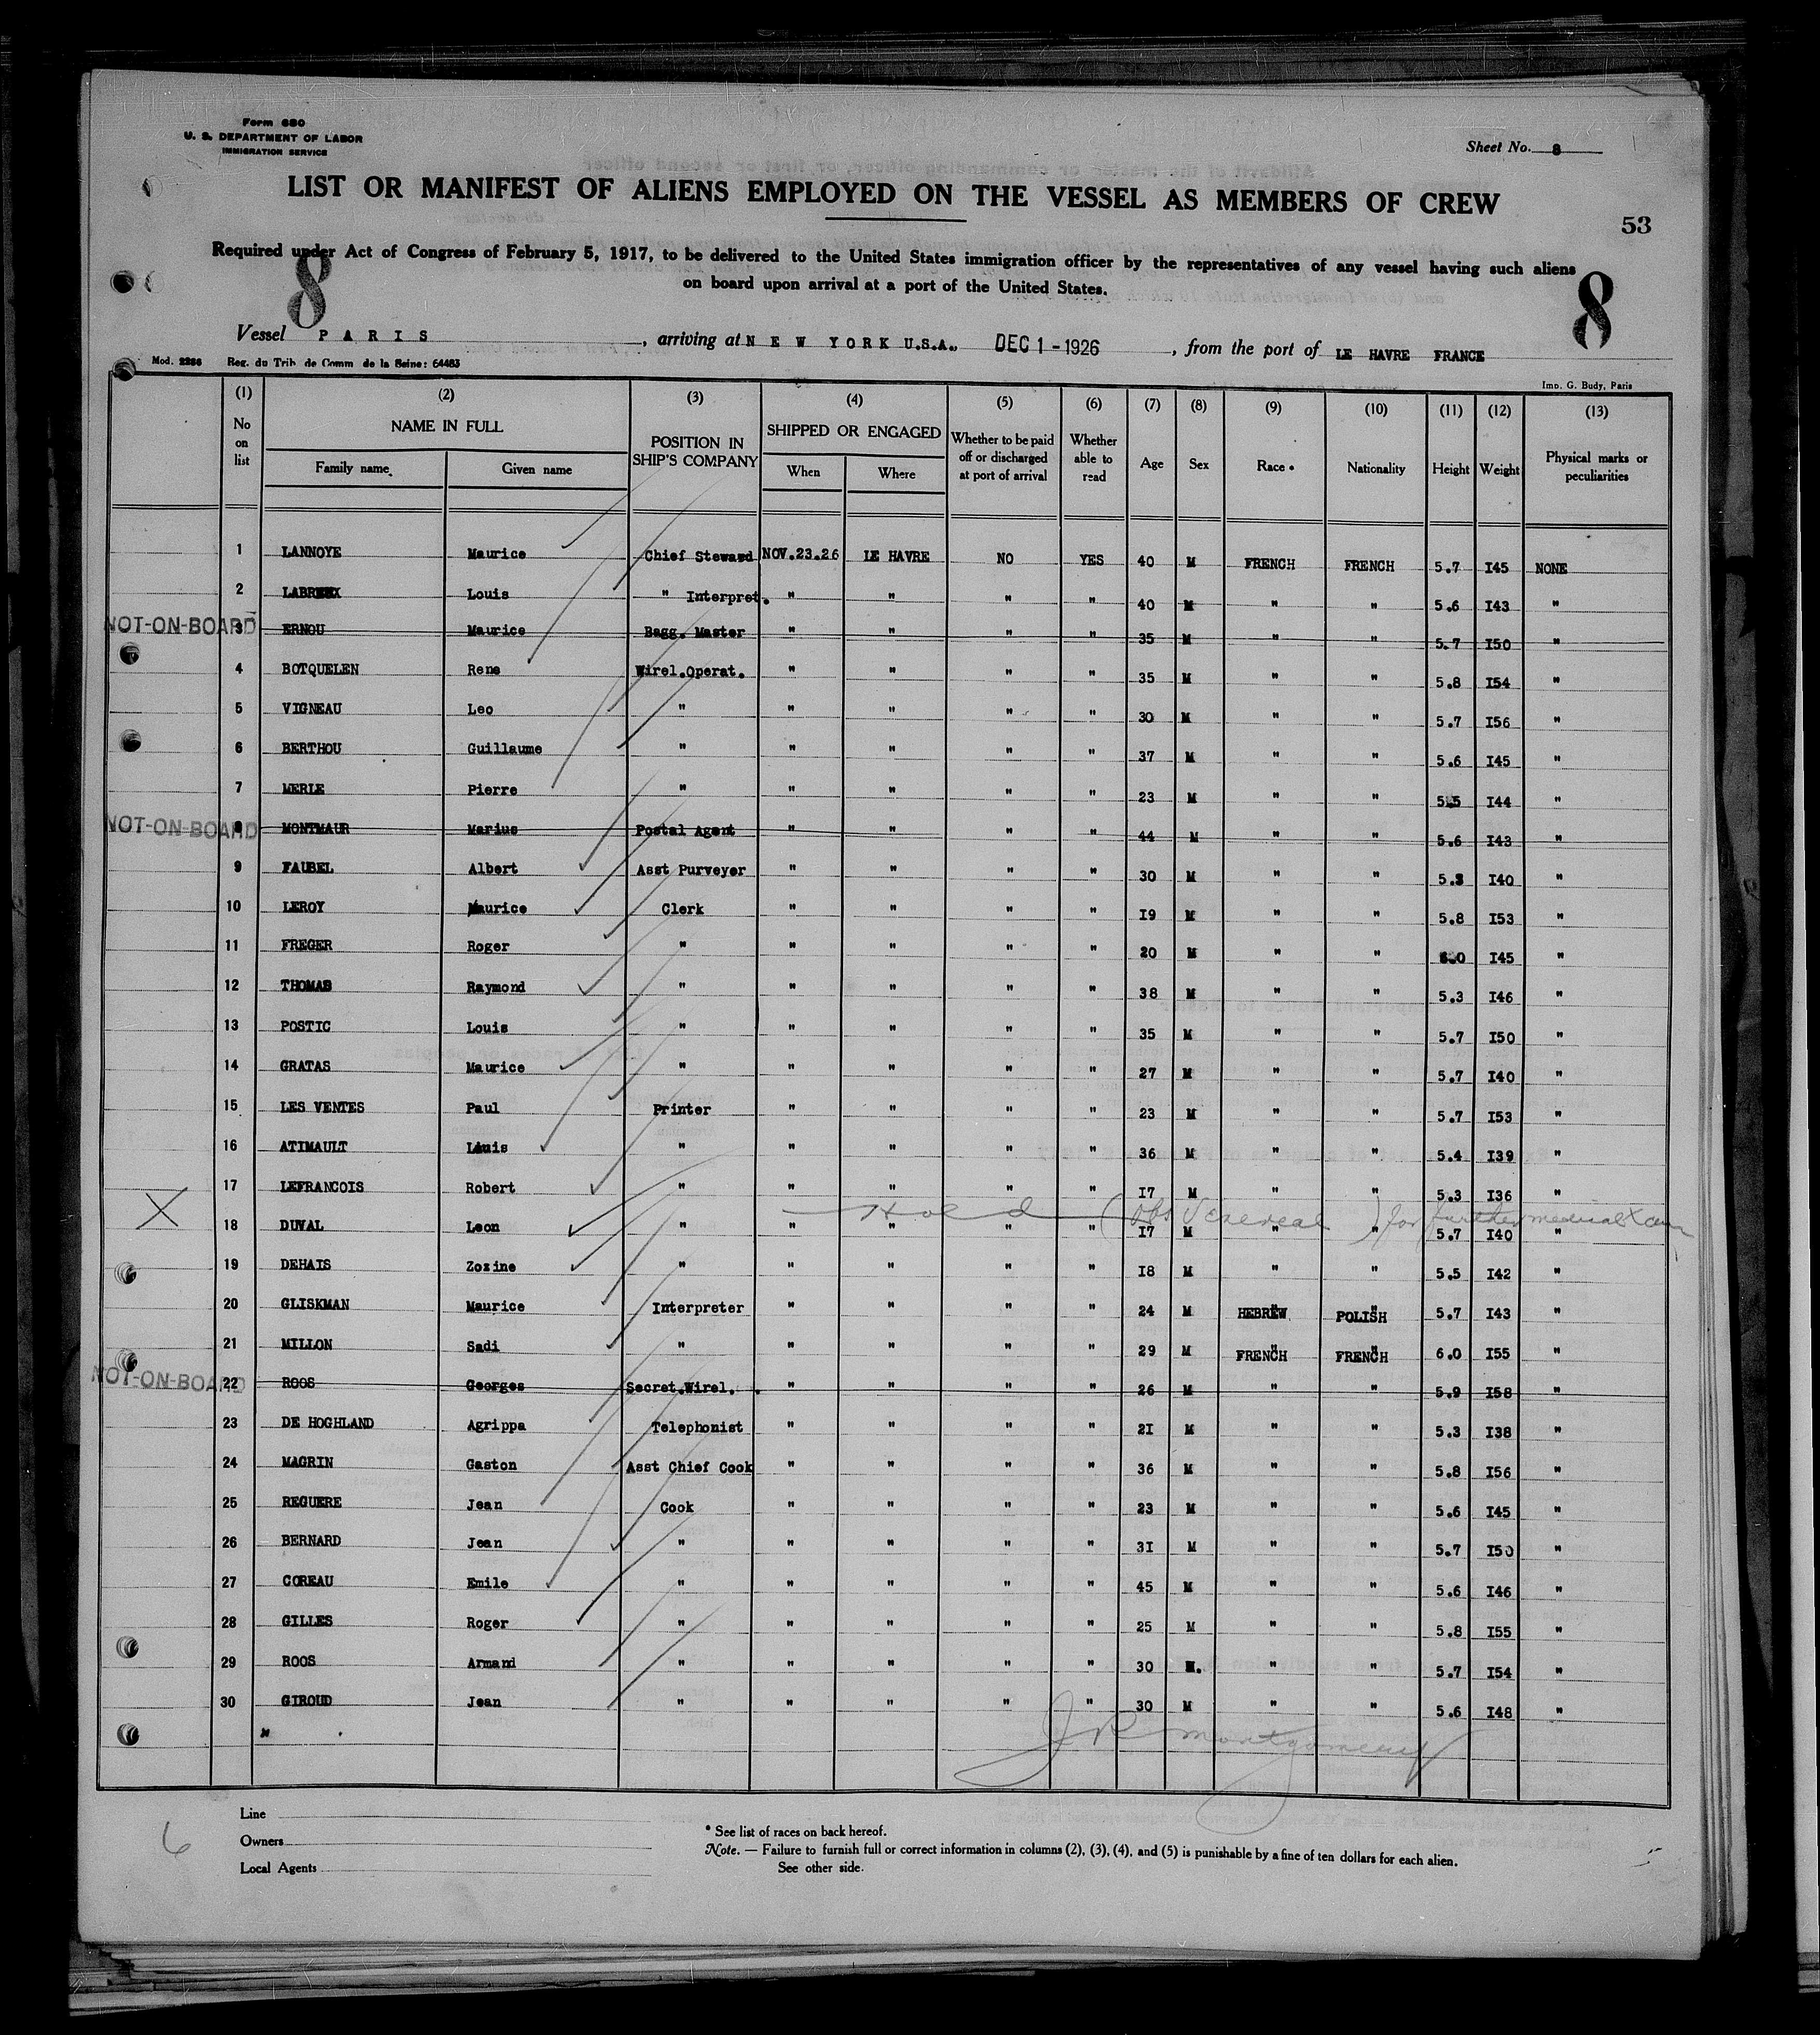 Form 680
U. S. DEPARTMENT OF LABOR
IMMIGRATION SERVICE
Sheet No. 8
LIST OR MANIFEST OF ALIENS EMPLOYED ON THE VESSEL AS MEMBERS OF CREW
53
Required under Act of Congress of February 5, 1917, to be delivered to the United States immigration officer by the representatives of any vessel having such aliens
on board upon arrival at a port of the United States.
8 8
Vessel PARIS, arriving at NEW YORK U.S.A., DEC 1 - 1926, from the port of LE HAVRE FRANCE
Mod. 2286 Reg. du Trib. de Comm de la Seine: 64483
Imp. G. Budy, Paris
(1) (2) (3) (4) (5) (6) (7) (8) (9) (10) (11) (12) (13)
No on list NAME IN FULL POSITION IN SHIP'S COMPANY SHIPPED OR ENGAGED Whether to be paid off or discharged at port of arrival Whether able to read Age Sex Race * Nationality Height Weight Physical marks or peculiarities
Family name Given name When Where
1 LANNOYE Maurice Chief Steward NOV.23.26 LE HAVRE NO YES 40 M FRENCH FRENCH 5.7 I45 NONE
2 Louis " Interpret. " " " " 40 M " " 5.6 I43 "
NOT-ON-BOARD 3 ERNOU Maurice Bagg. Master " " " " 35 M " " 5.7 I50 "
4 BOTQUELEN Rene Wirel.Operat. " " " " 35 M " " 5.8 I54 "
5 VIGNEAU Leo " " " " " 30 M " " 5.7 I56 "
6 BERTHOU Guillaume " " " " " 37 M " " 5.6 I45 "
7 MERLE Pierre " " " " " 23 M " " 5.5 I44 "
NOT-ON-BOARD 8 MONTMAUR Marius Postal Agent " " " " 44 M " " 5.6 I43 "
9 FAUBEL Albert Asst Purveyer " " " " 30 M " " 5.3 I40 "
10 LEROY Maurice Clerk " " " " I9 M " " 5.8 I53 "
11 FREGER Roger " " " " " 20 M " " 6.0 I45 "
12 THOMAS Raymond " " " " " 38 M " " 5.3 I46 "
13 POSTIC Louis " " " " " 35 M " " 5.7 I50 "
14 GRATAS Maurice " " " " " 27 M " " 5.7 I40 "
15 LES VENTES Paul Printer " " " " 23 M " " 5.7 I53 "
16 ATIMAULT Louis " " " " " 36 M " " 5.4 I39 "
17 LEFRANCOIS Robert " " " " " I7 M " " 5.3 I36 "
X Hold (Obs Venereal) for further medical Exam
18 DUVAL Leon " " " " " I7 M " " 5.7 I40 "
19 DEHAIS Zozine " " " " " I8 M " " 5.5 I42 "
20 GLISKMAN Maurice Interpreter " " " " 24 M HEBREW POLISH 5.7 I43 "
21 MILLON Sadi " " " " " 29 M FRENCH FRENCH 6.0 I55 "
NOT-ON-BOARD 22 ROOS Georges Secret.Wirel. " " " " 26 M " " 5.9 I58 "
23 DE HOGHLAND Agrippa Telephonist " " " " 2I M " " 5.3 I38 "
24 MAGRIN Gaston Asst Chief Cook " " " " 36 M " " 5.8 I56 "
25 REGUERE Jean Cook " " " " 23 M " " 5.6 I45 "
26 BERNARD Jean " " " " " 3I M " " 5.7 I50 "
27 COREAU Emile " " " " " 45 M " " 5.6 I46 "
28 GILLES Roger " " " " " 25 M " " 5.8 I55 "
29 ROOS Armand " " " " " 30 M. " " 5.7 I54 "
30 GIROUD Jean " " " " " 30 M " " 5.6 I48 "
J R Montgomery
Line
Owners
Local Agents
6
* See list of races on back hereof.
Note. — Failure to furnish full or correct information in columns (2), (3), (4), and (5) is punishable by a fine of ten dollars for each alien.
See other side.